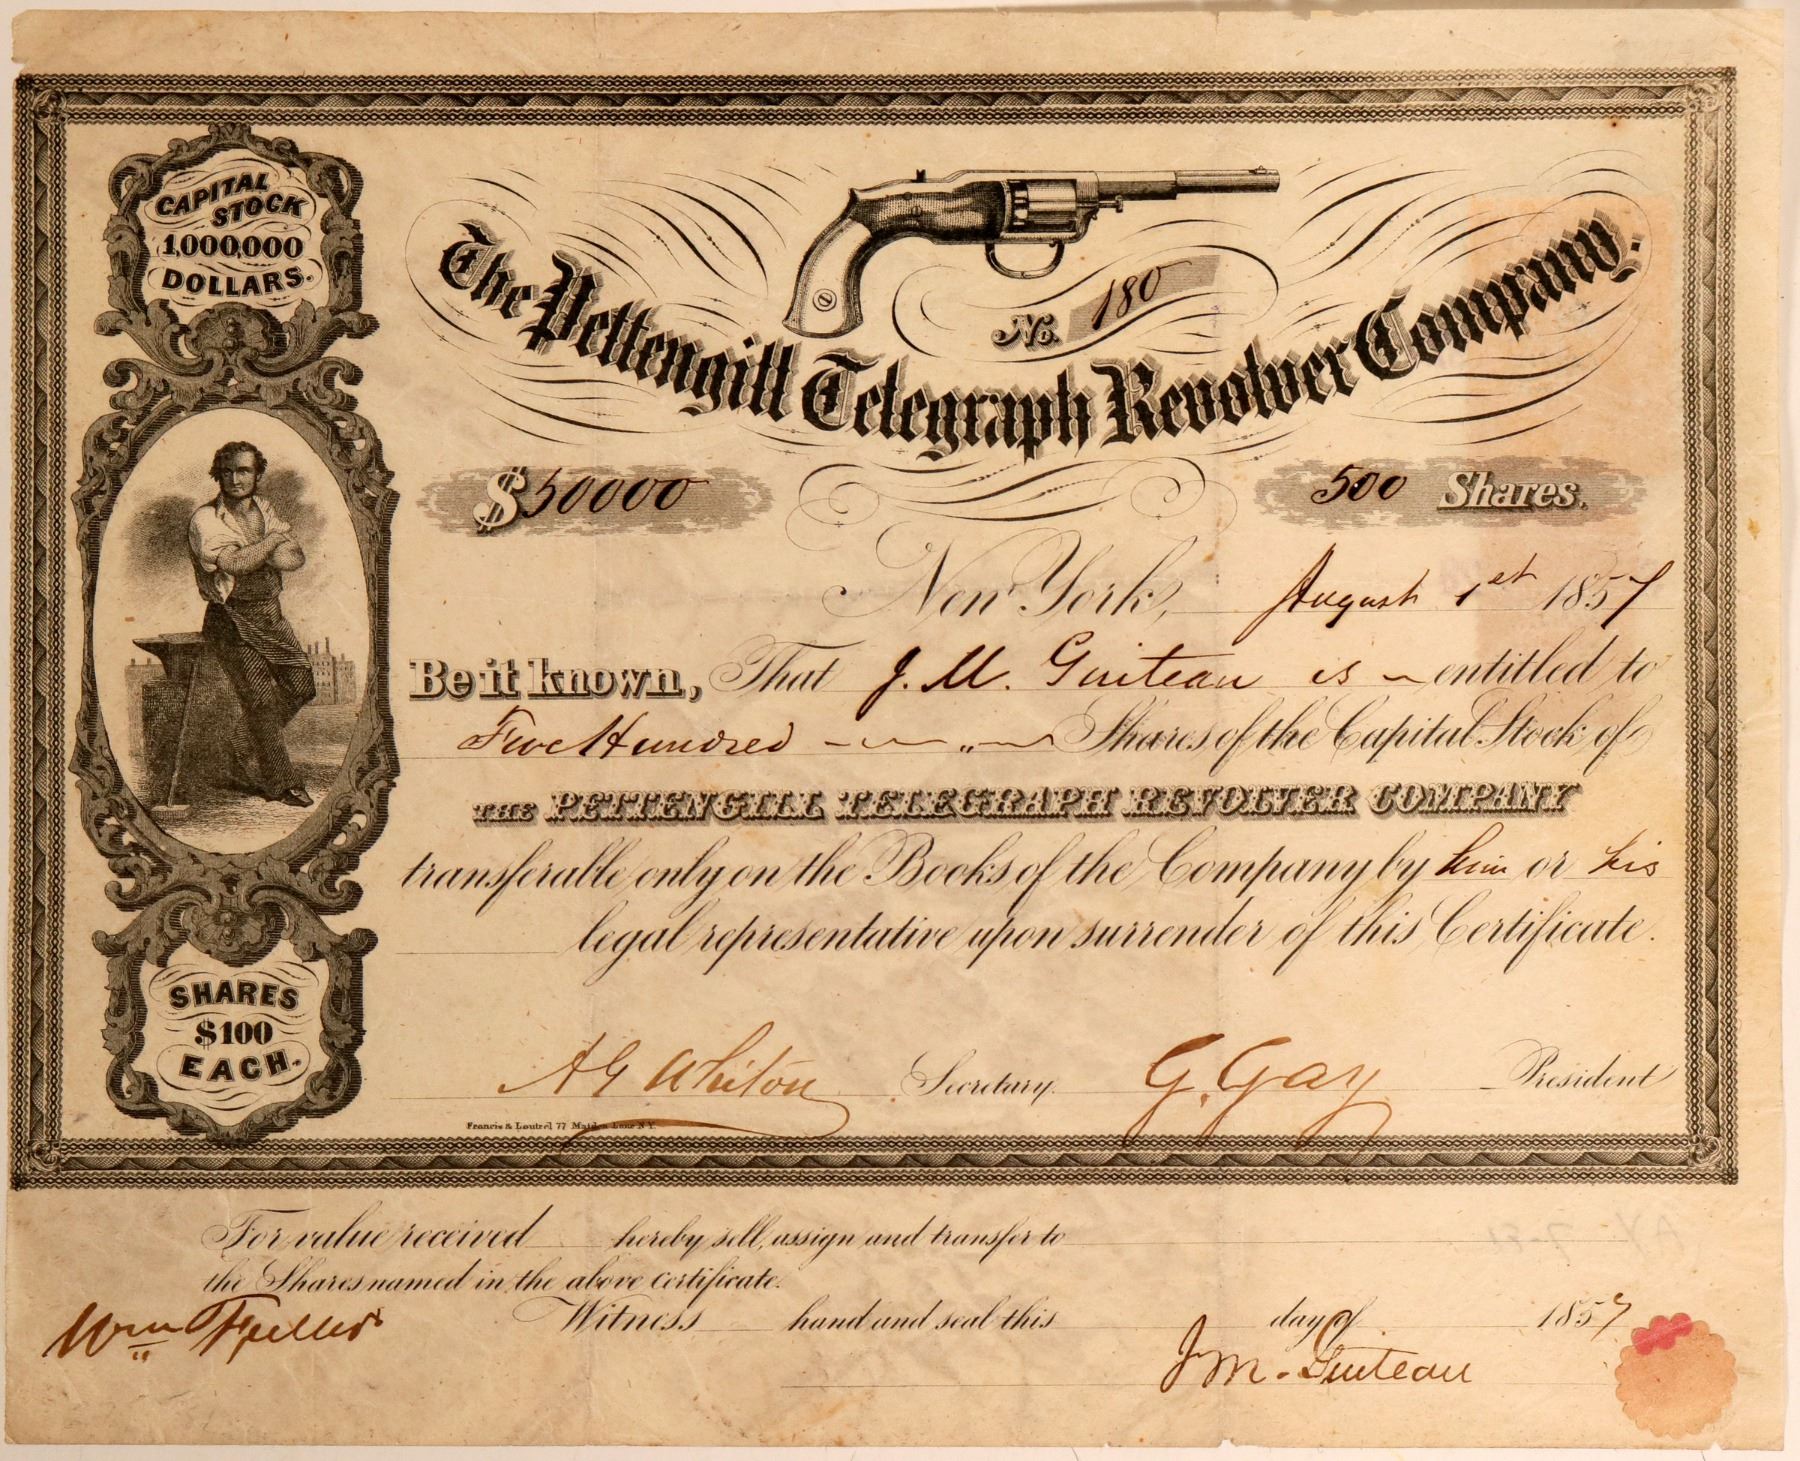 CAPITAL
STOCK
1,000,000
DOLLARS.
No. 180
The Pettengill Telegraph Revolver Company.
$50000
500 Shares.
New York, August 1st 1857
Be it known, That J. M. Guiteau is entitled to
Five Hundred Shares of the Capital Stock of
THE PETTENGILL TELEGRAPH REVOLVER COMPANY
transferable only on the Books of the Company by him or his
legal representative upon surrender of this Certificate.
SHARES
$100
EACH.
A G Whiton Secretary. G. Gay President
Francis & Loutrel 77 Maiden Lane N.Y.
For value received hereby sell, assign and transfer to
the Shares named in the above certificate.
Witness hand and seal this day of 1857
Wm Fuller
J M. Guiteau